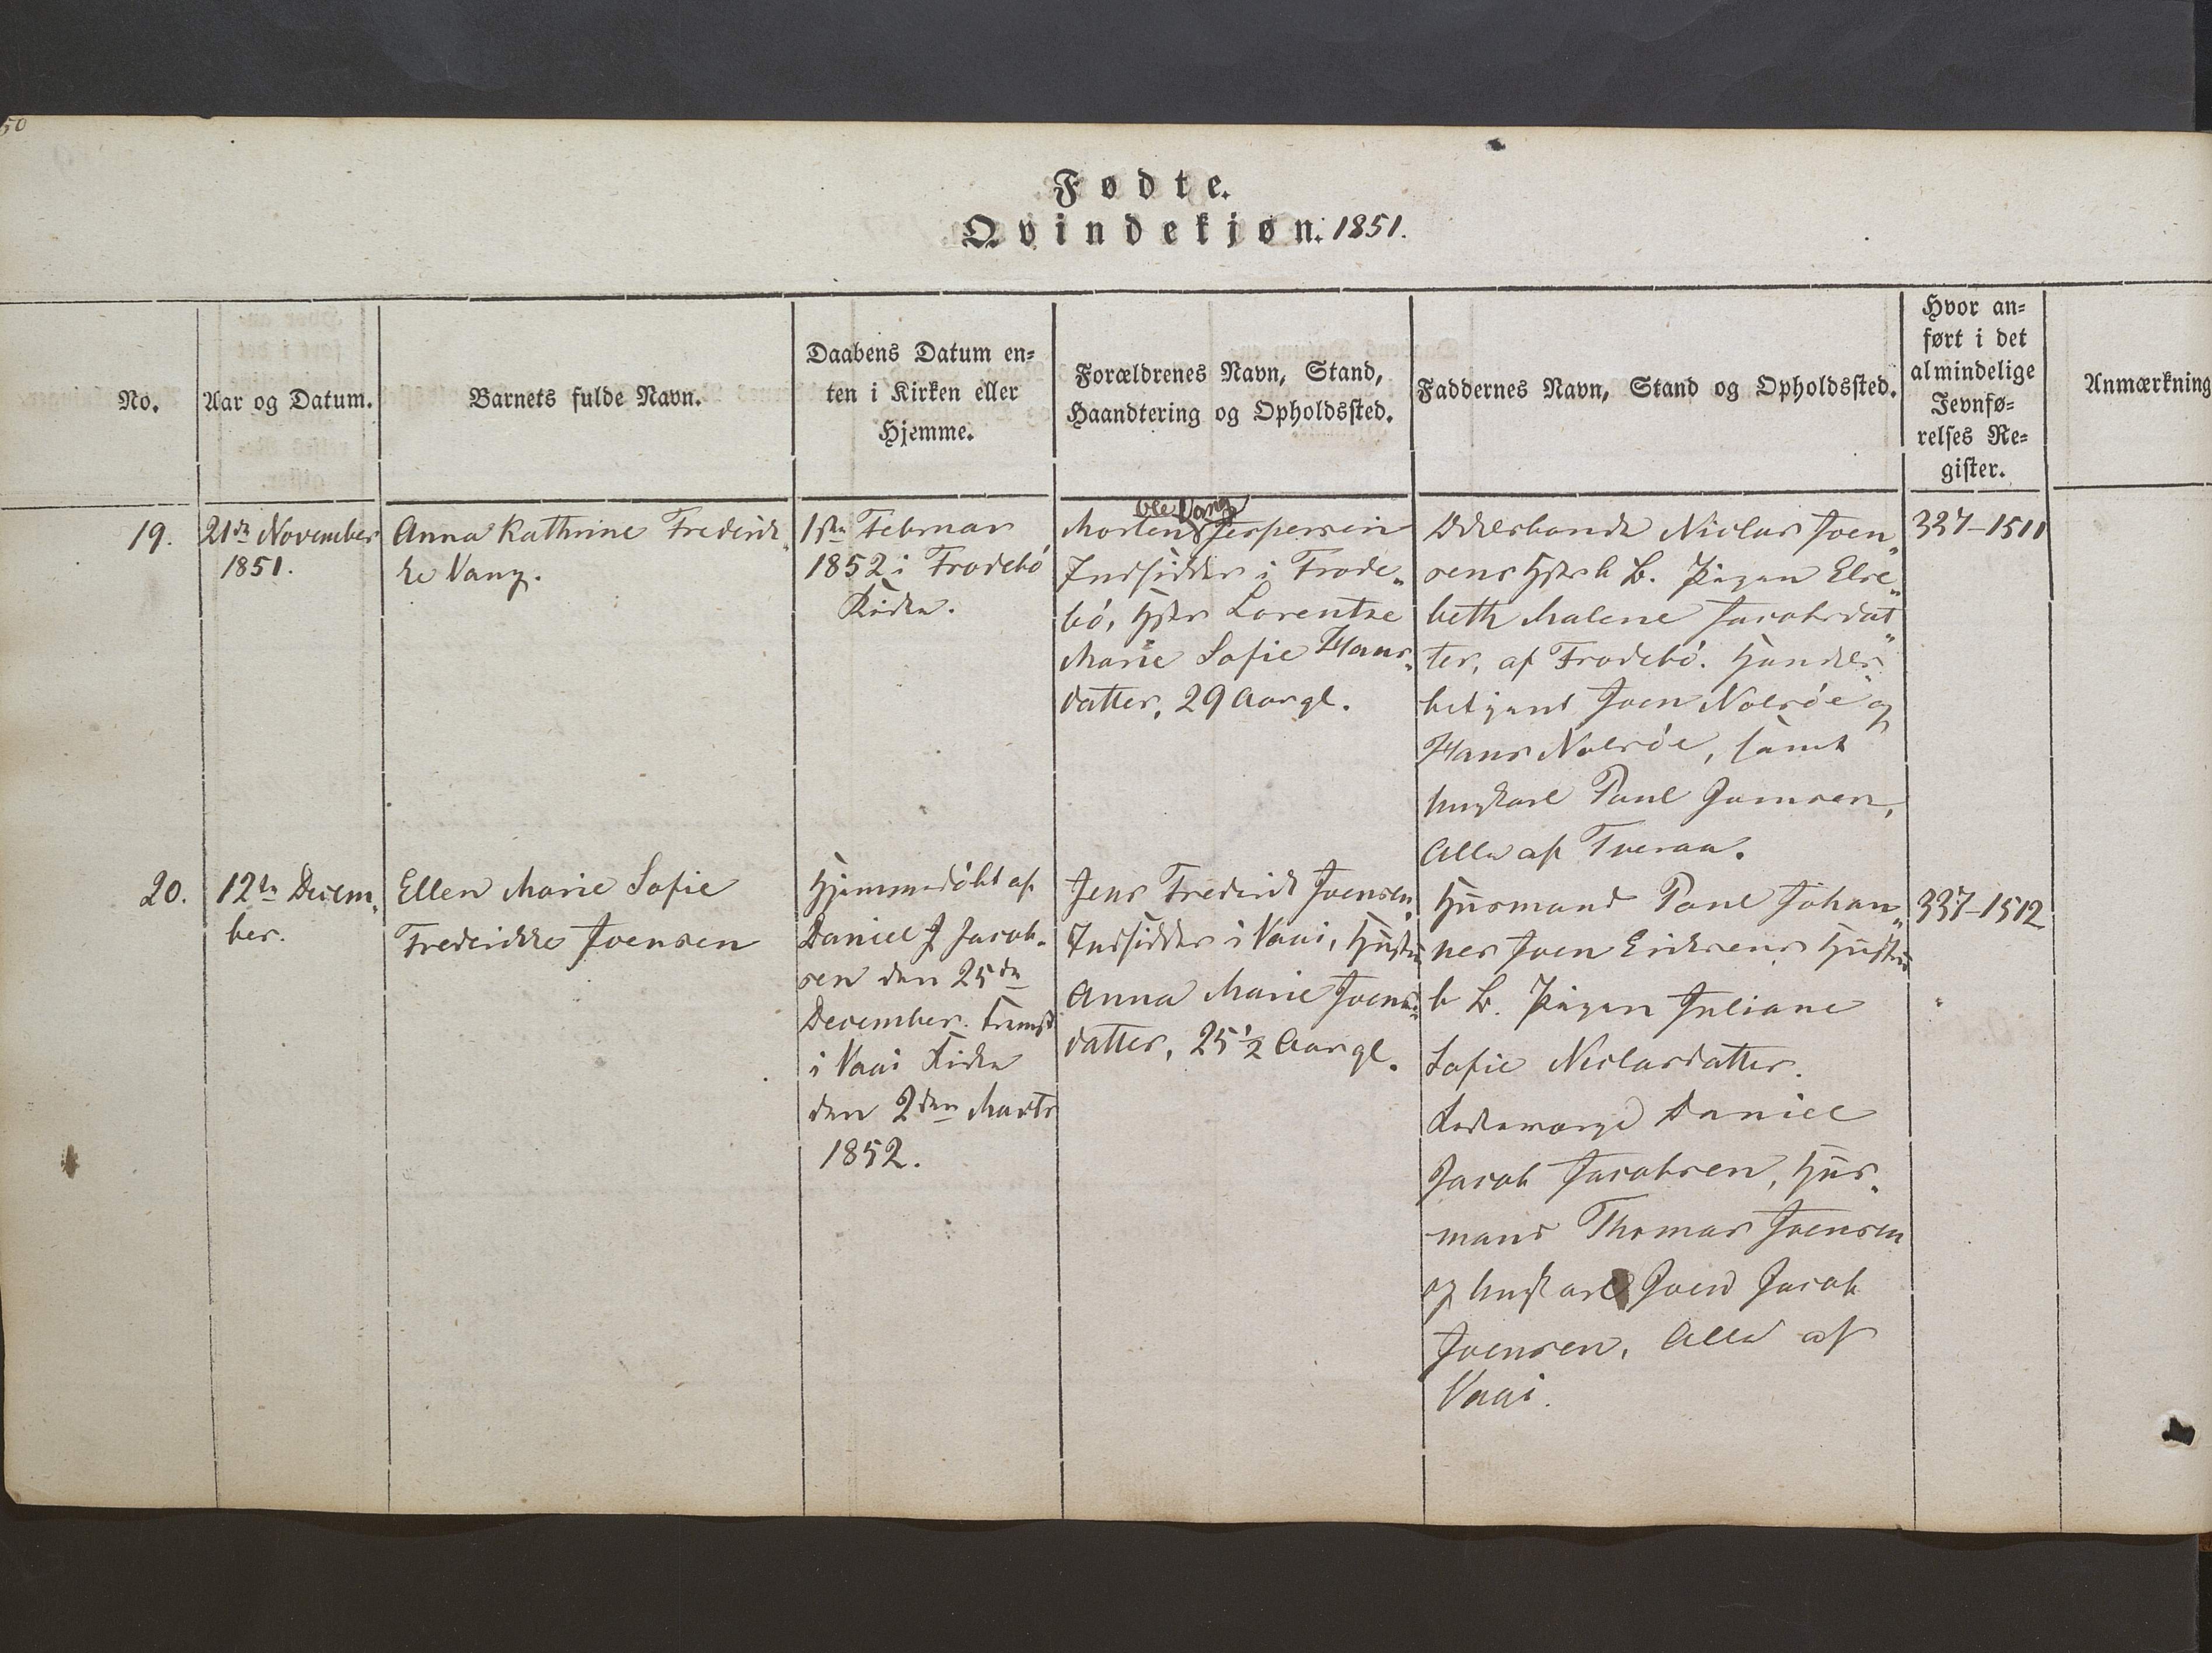 50
Fødte.
Qvindekjøn. 1851.
No.
Aar og Datum.
Barnets fulde Navn.
Daabens Datum en-
ten i Kirken eller
Hjemme.
Forældrenes Navn, Stand,
Haandtering og Opholdssted.
Faddernes Navn, Stand og Opholdssted.
Hvor an-
ført i det
almindelige
Jevnfø-
relses Re-
gister.
Anmærkning
19.
21de November
1851.
Anna Kathrine Frederik-
ke Vang.
1ste Februar
1852 i Frodebó
Kirke.
Ole Vang
Morten Jespersen
Indsidder i Frode-
bó, Hstr Lorentze
Marie Sofie Hans-
datter, 29 Aar gl.
Odelsbonde Niclas Joen-
sens Hstr b. B. Pigen Else-
beth Malene Jacobsdat-
ter, af Frodebó. Handels-
betjent Joen Nolsöe og
Hans Nolsöe, samt
Ungkarl Poul Joensen,
Alle af Tveraa.
337-1511
20.
12te Decem-
ber.
Ellen Marie Sofie
Frederikke Joensen
Hjemmedöbt af
Daniel J Jacob-
sen den 25de
December. Fremst
i Vaai Kirke
den 2den Marts
1852.
Jens Frederik Joensen,
Indsidder i Vaai, Hustru
Anna Marie Joens-
datter, 25 1/2 Aar gl.
Husmand Poul Johan-
nes Joen Eriksens Hustru
b B. Pigen Juliane
Sofie Niclasdatter.
Kirkeværge Daniel
Jacob Jacobsen, Hus-
mand Thomas Joensen
og Ungkarl Joen Jacob
Joensen, Alle af
Vaai.
337-1512